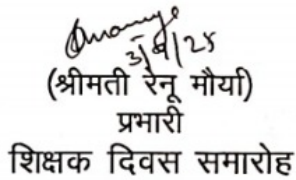 3/9/25
(श्रीमती रेनू मौर्या)
प्रभारी
शिक्षक दिवस समारोह